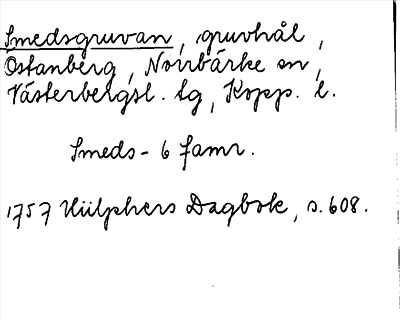 Smedsgruvan, gruvhål,
Östanberg, Norrbärke sn,
Västerbergsl. tg, Kopp. l.
Smeds- 6 famr.
1757 Hülphers Dagbok, s. 608.